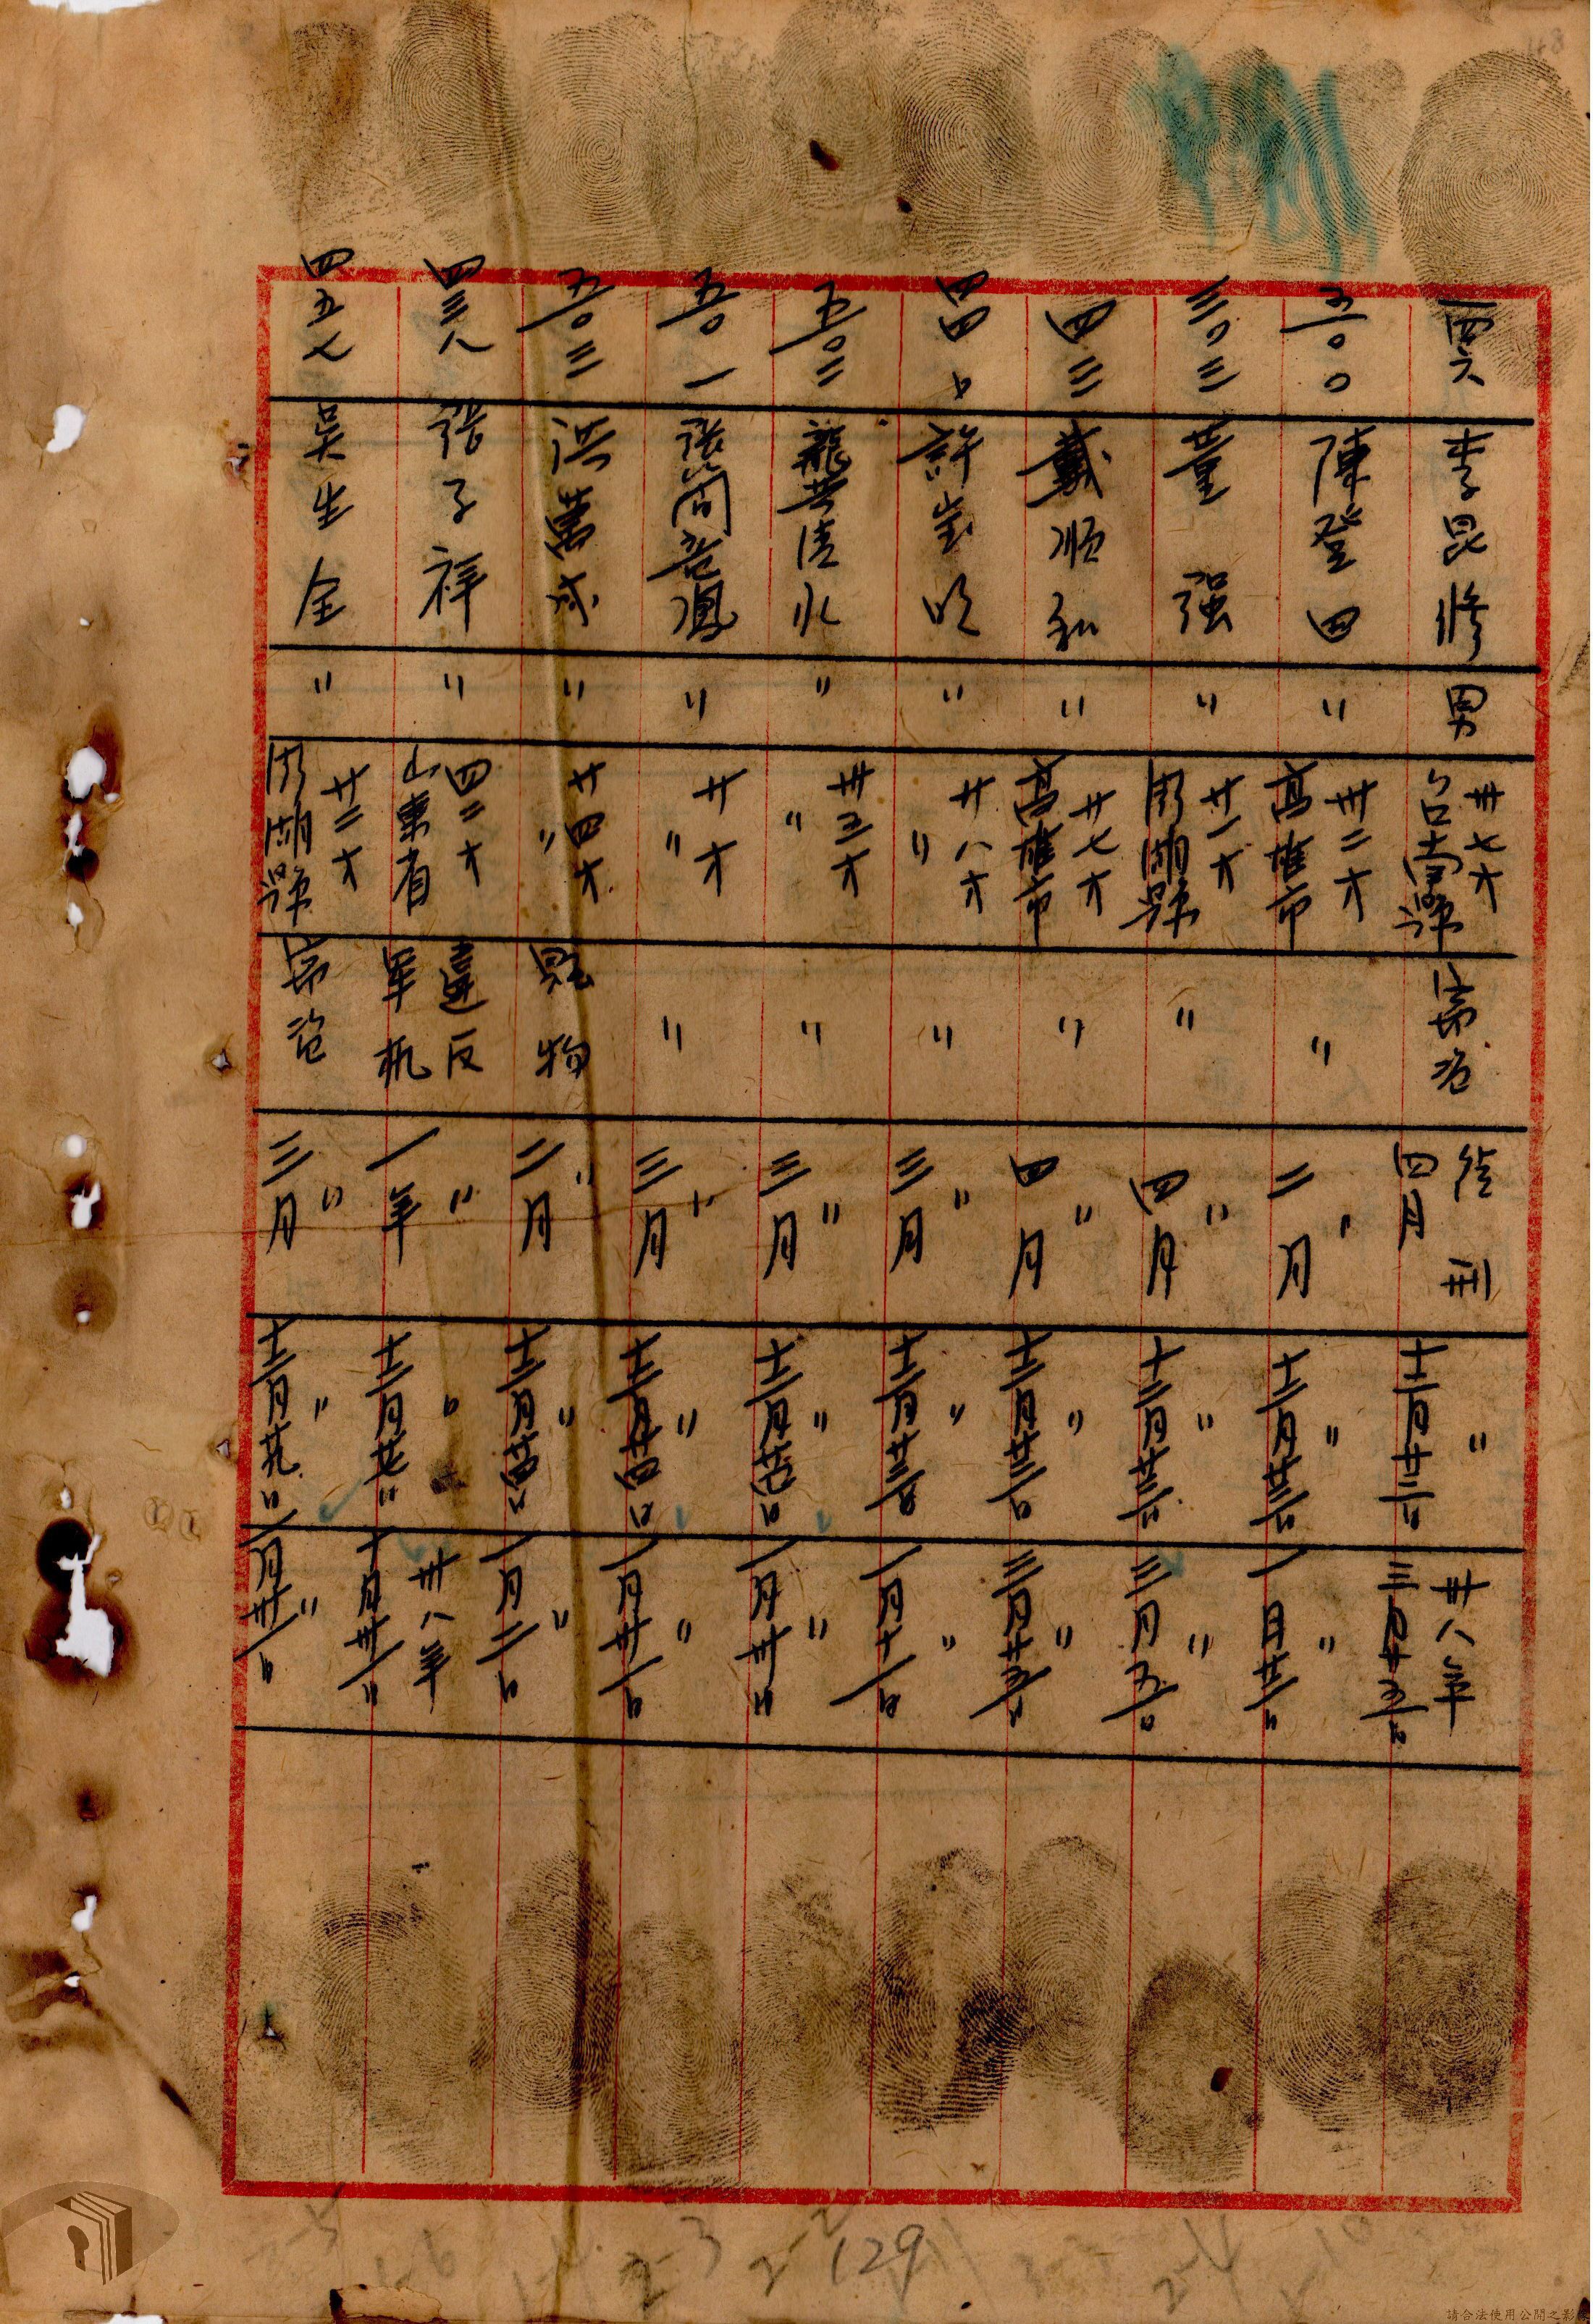 一四六
李昆修
男
卅七才
台南縣
竊盜
徒刑
四月
〃
十二月廿三日
卅八年
三月廿五日
五〇〇
陳登田
〃
卅二才
高雄市
〃
〃
二月
〃
十二月廿三日
〃
三〇三
董強
〃
廿一才
澎湖縣
〃
〃
四月
〃
十二月廿三日
〃
三月五日
四三
戴順和
〃
廿七才
高雄市
〃
〃
四月
〃
十二月廿三日
〃
三月廿五日
許
〃
廿八才
〃
〃
〃
三月
〃
十二月廿三日
〃
五〇二
龍
〃
卅三才
〃
〃
〃
三月
〃
〃
一月卅日
五〇一
張簡
〃
廿才
〃
〃
〃
三月
〃
十二月廿四日
〃
一月卅一日
五〇三
洪萬成
〃
廿四才
〃
贓物
〃
二月
〃
十二月廿四日
〃
一月二日
四三八
張子祥
〃
四二才
山東省
違反
軍机
〃
一年
十二月廿七日
卅八年
十月卅一日
四五七
吳生全
〃
廿二才
澎湖縣
竊盜
〃
三月
〃
十二月廿九日
〃
一月卅一日
129
請合法使用公開之影